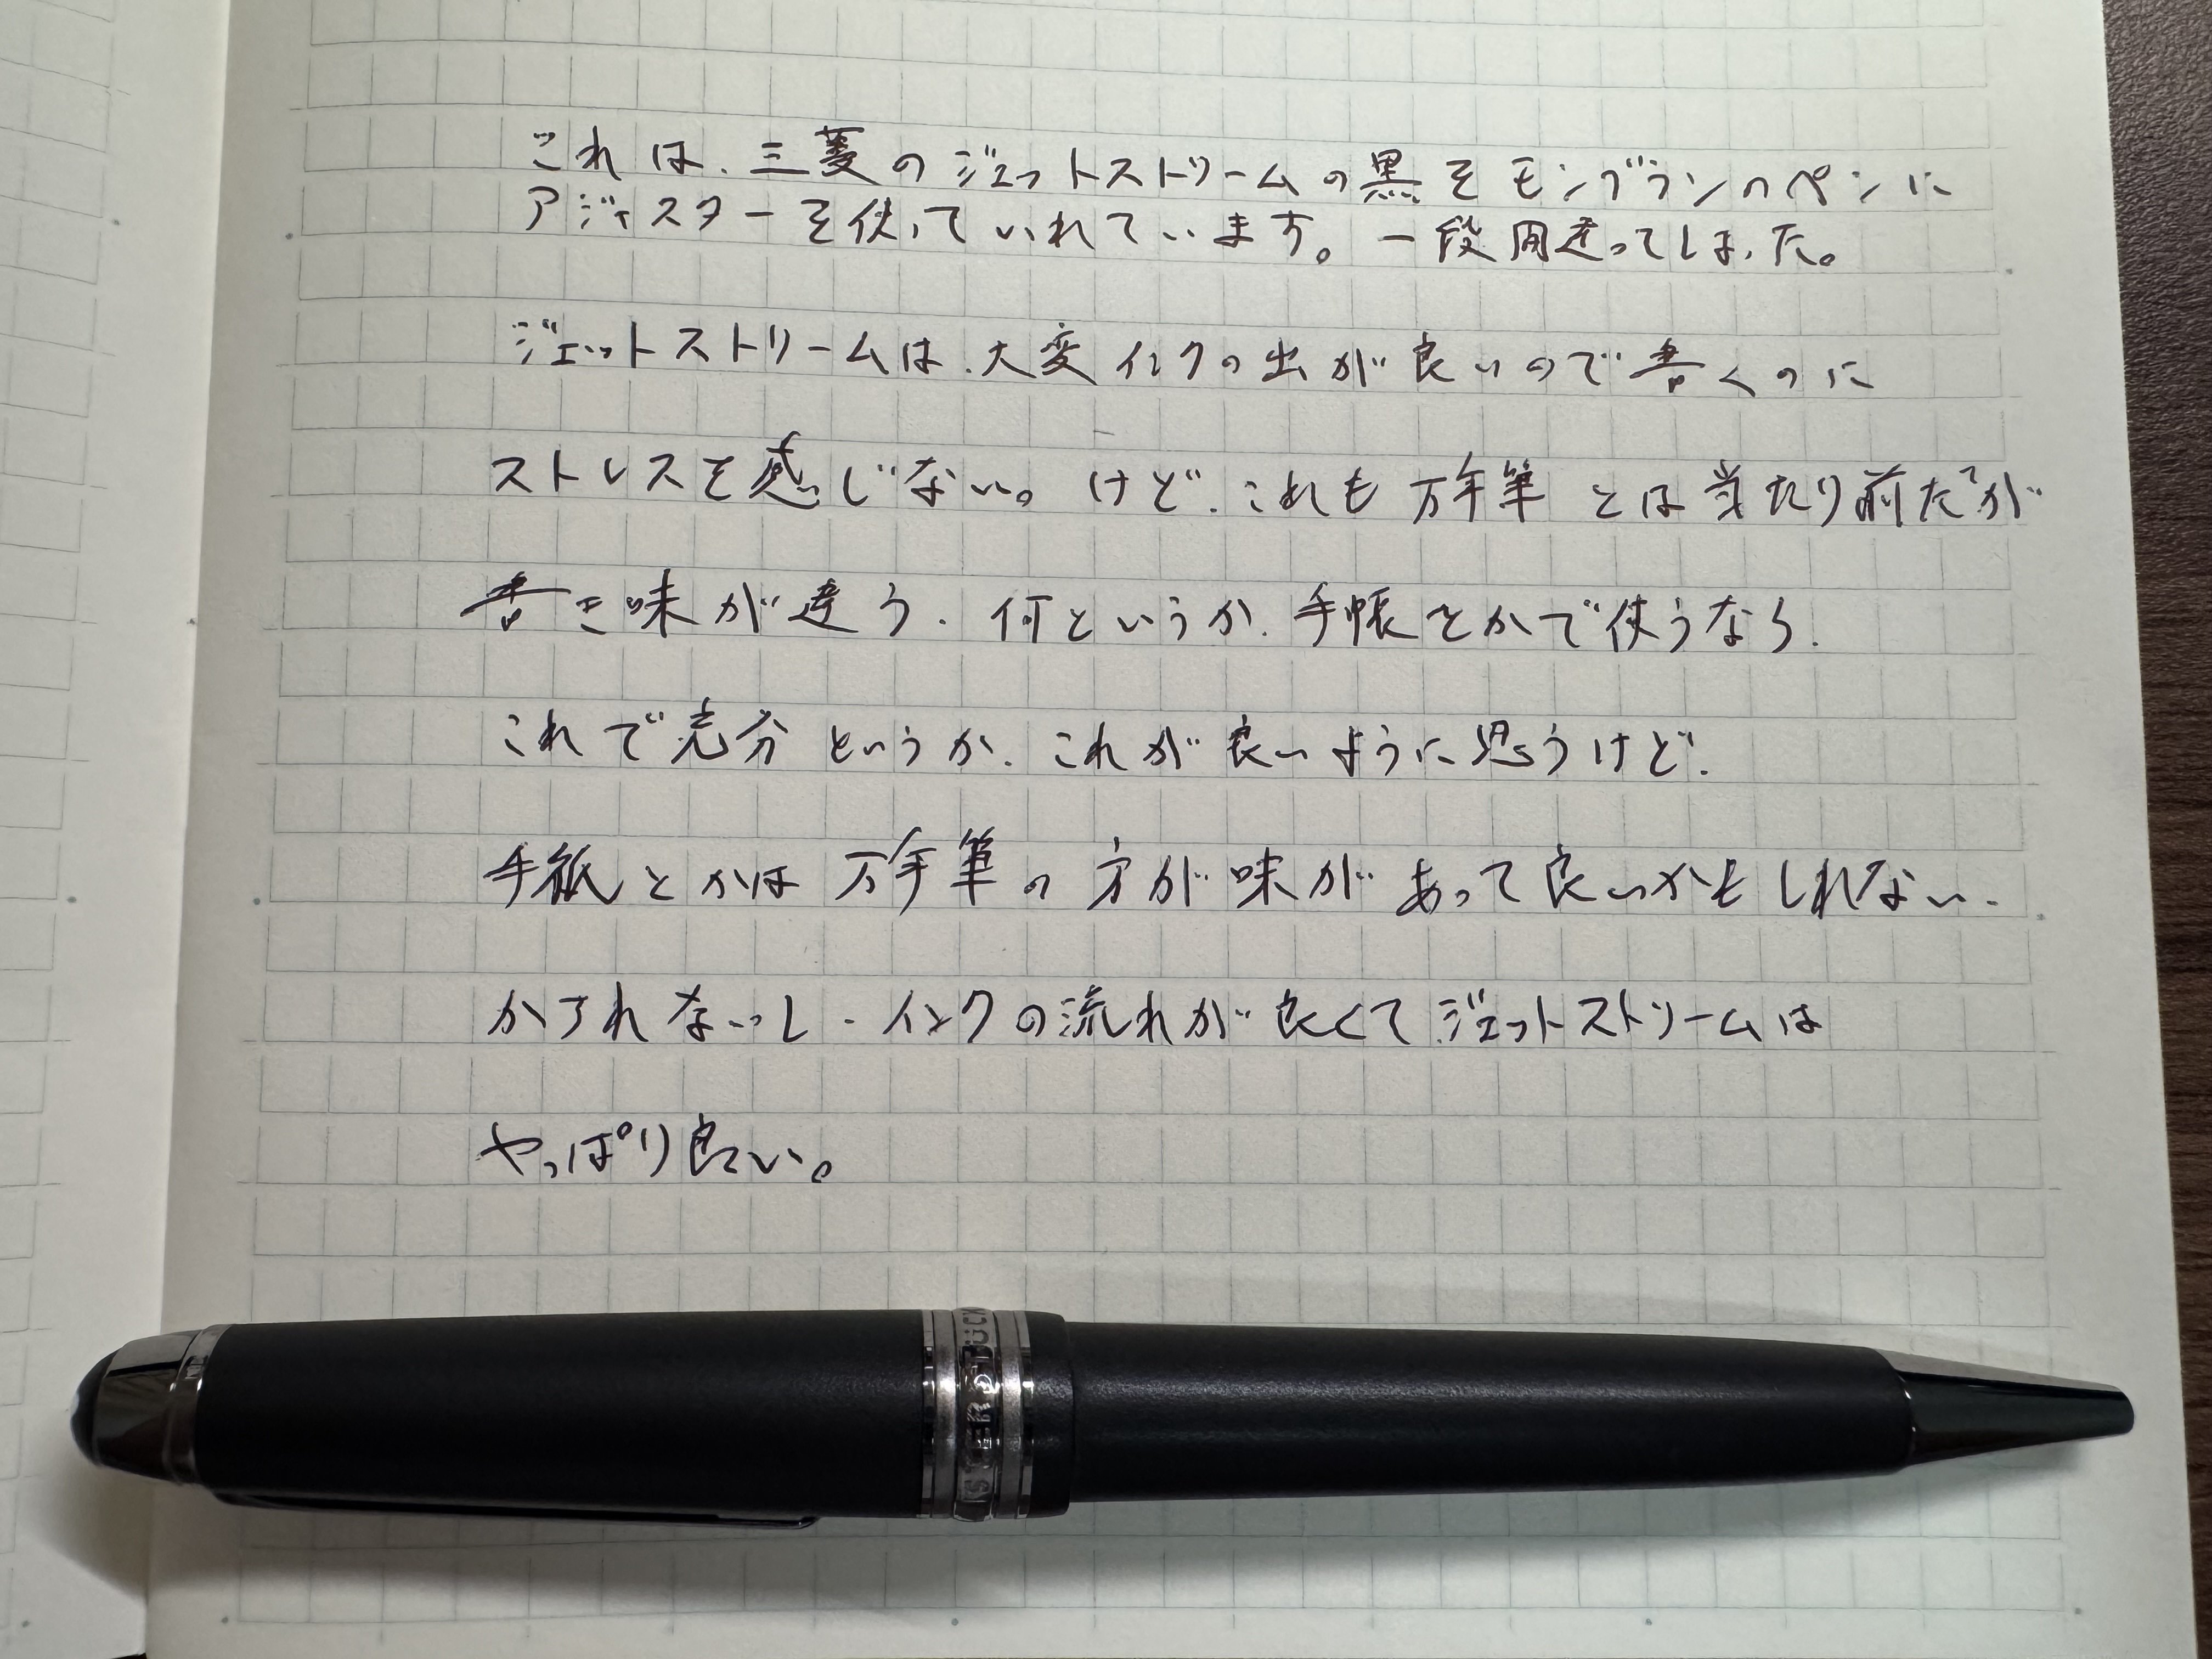 これは、三菱のジェットストリームの黒をモンブランのペンに
アジャスターを使っていれています。一段間違ってしまった。
ジェットストリームは、大変インクの出が良いので書くのに
ストレスを感じない。けど、これも万年筆とは当たり前だが
書き味が違う、何というか、手帳とかで使うなら、
これで充分というか、これが良いように思うけど、
手紙とかは万年筆の方が味があって良いかもしれない、
かすれないっし、インクの流れが良くてジェットストリームは
やっぱり良い。